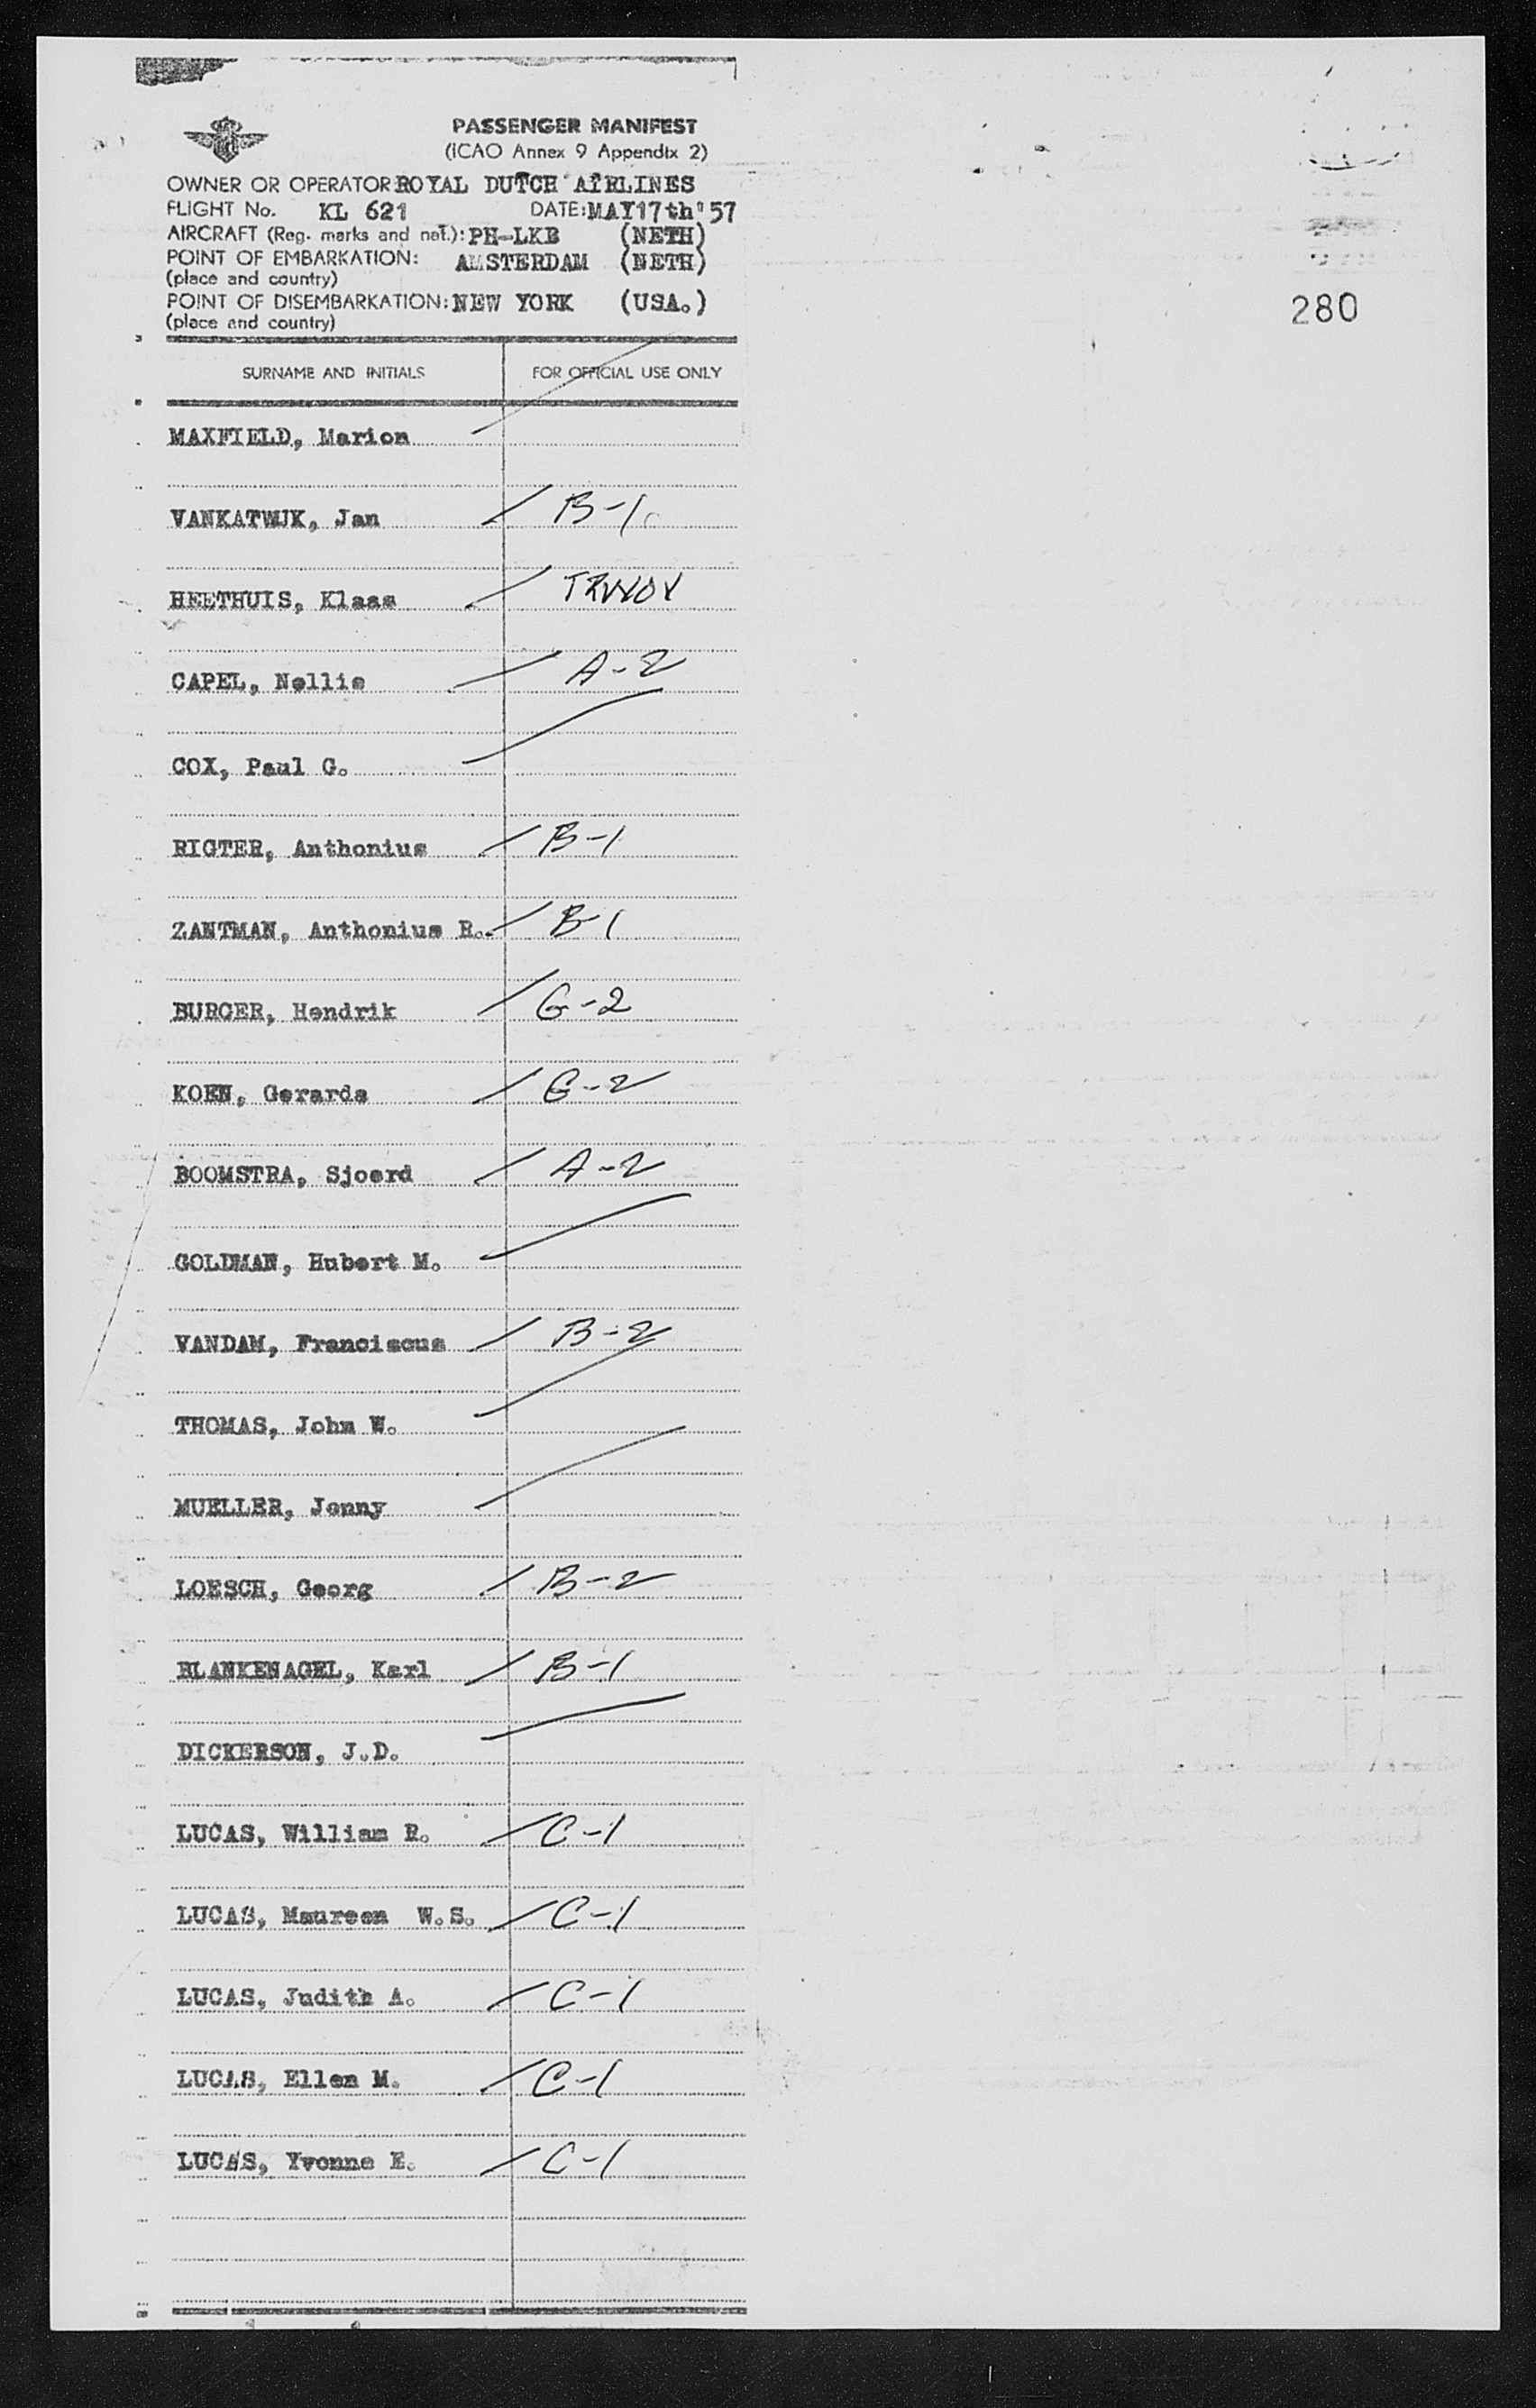 PASSENGER MANIFEST
(ICAO Annex 9 Appendix 2)
OWNER OR OPERATOR: ROYAL DUTCH AIRLINES
FLIGHT No. KL 621 DATE: MAY 17th '57
AIRCRAFT (Reg. marks and nat.): PH-LKB (NETH)
POINT OF EMBARKATION: AMSTERDAM (NETH)
(place and country)
POINT OF DISEMBARKATION: NEW YORK (USA.)
(place and country)
280
SURNAME AND INITIALS FOR OFFICIAL USE ONLY
MAXFIELD, Marion
VANKATWIJK, Jan B-1
HEETHUIS, Klaas
CAPEL, Nellie A-2
COX, Paul G.
RIGTER, Anthonius B-1
ZANTMAN, Anthonius R. B-1
BURGER, Hendrik G-2
KOEN, Gerarda G-2
BOOMSTRA, Sjoerd A-2
GOLDMAN, Hubert M.
VANDAM, Franciscus B-2
THOMAS, John W.
MUELLER, Jenny
LOESCH, Georg B-2
BLANKENAGEL, Karl B-1
DICKERSON, J.D.
LUCAS, William R. C-1
LUCAS, Maureen W.S. C-1
LUCAS, Judith A. C-1
LUCAS, Ellen M. C-1
LUCAS, Yvonne E. C-1